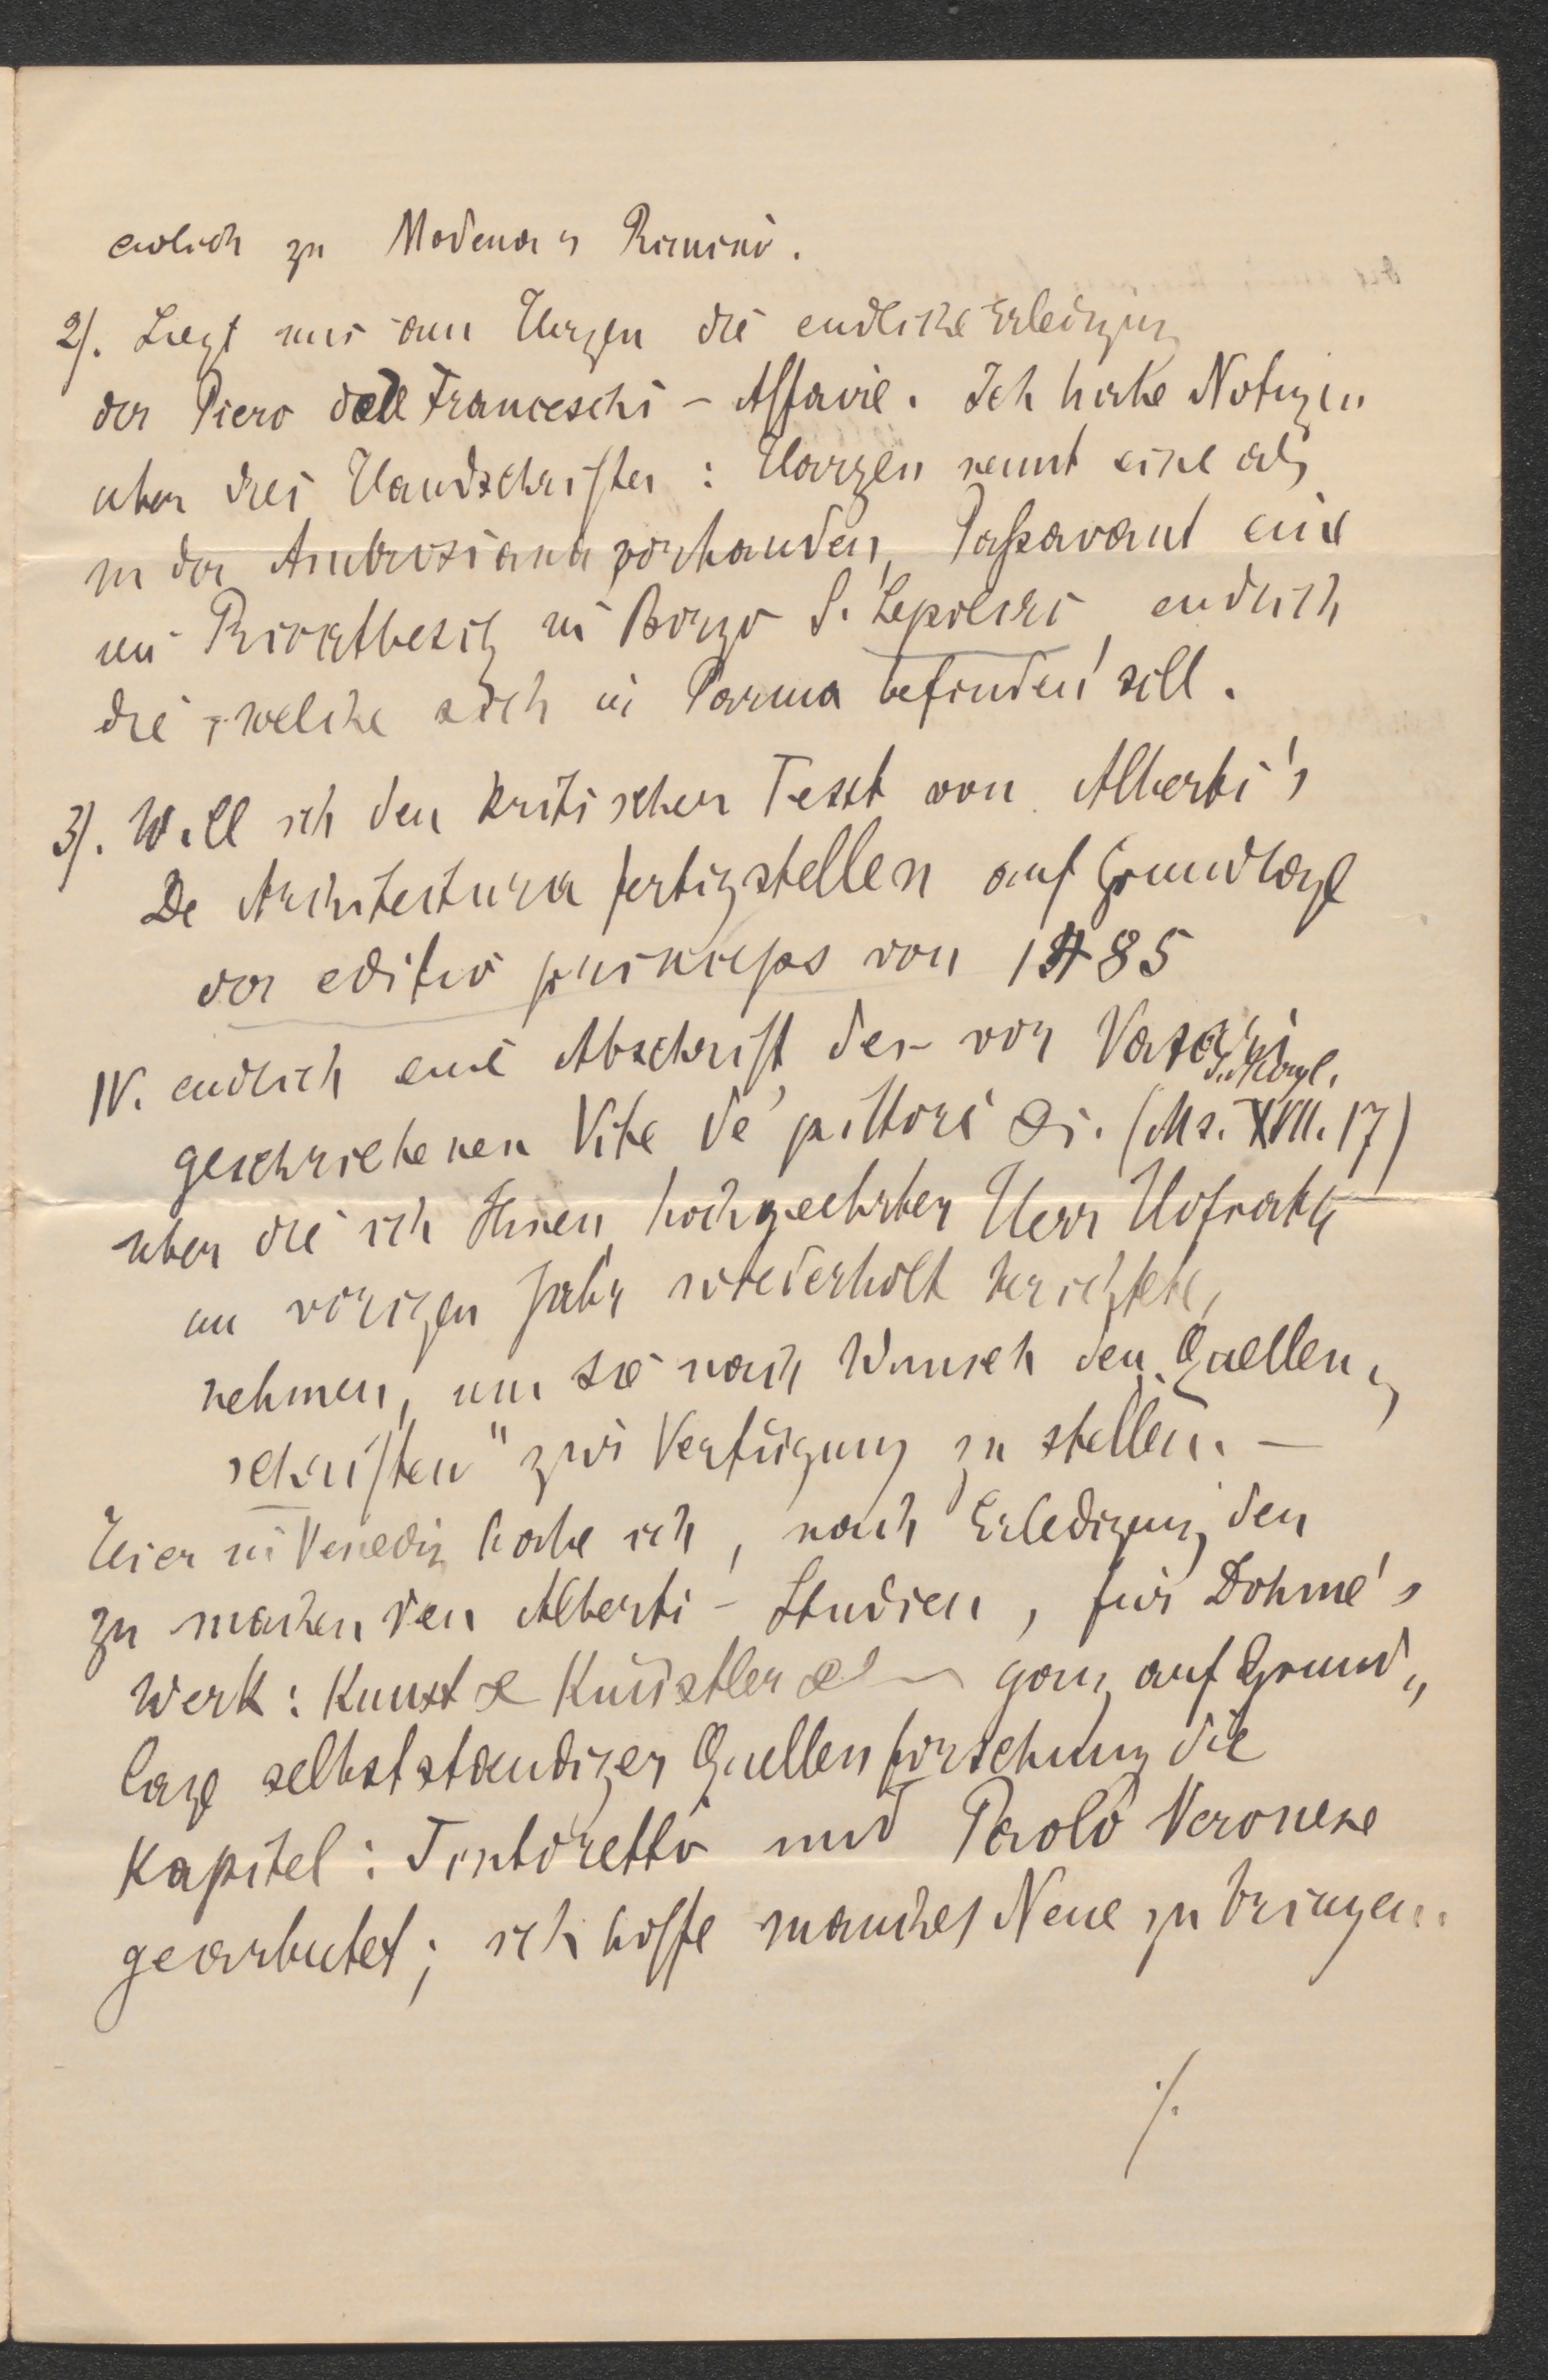 endlich zu Modena u Rimini.
2). Liegt mir am Herzen die endliche Erledigung
der Piero dell Franceschi - Affaire. Ich habe Notizen
über drei Handschriften: Harzen nennt eine als
in der Ambrosiana vorhanden, Passavant eine
im Privatbesitz in Borgo S. Sepolcro, endlich
die, welche sich in Parma befinden soll.
3). Will ich den kritischen Text von Alberti's
De Architectura fertigstellen auf Grundlage
der editio princeps von 1485
IV. endlich eine Abschrift der vor Vasari
geschriebenen Vite de' pittori (Ms. XVII. 17)
über die ich Ihnen hochgeehrter Herr Hofrath
im vorigen Jahr wiederholt berichtete,
nehmen, um sie nach Wunsch den „Quellen„
schriften" zur Verfügung zu stellen. —
Hier in Venedig habe ich, nach Erledigung der
zu machenden Alberti - Studien, für Dohme's
Werk: Kunst & Künstler ganz auf Grund„
lage selbstständiger Quellenforschung die
Kapitel: Tintoretto und Paolo Veronese
gearbeitet; ich hoffe manches Neue zu bringen.
./.